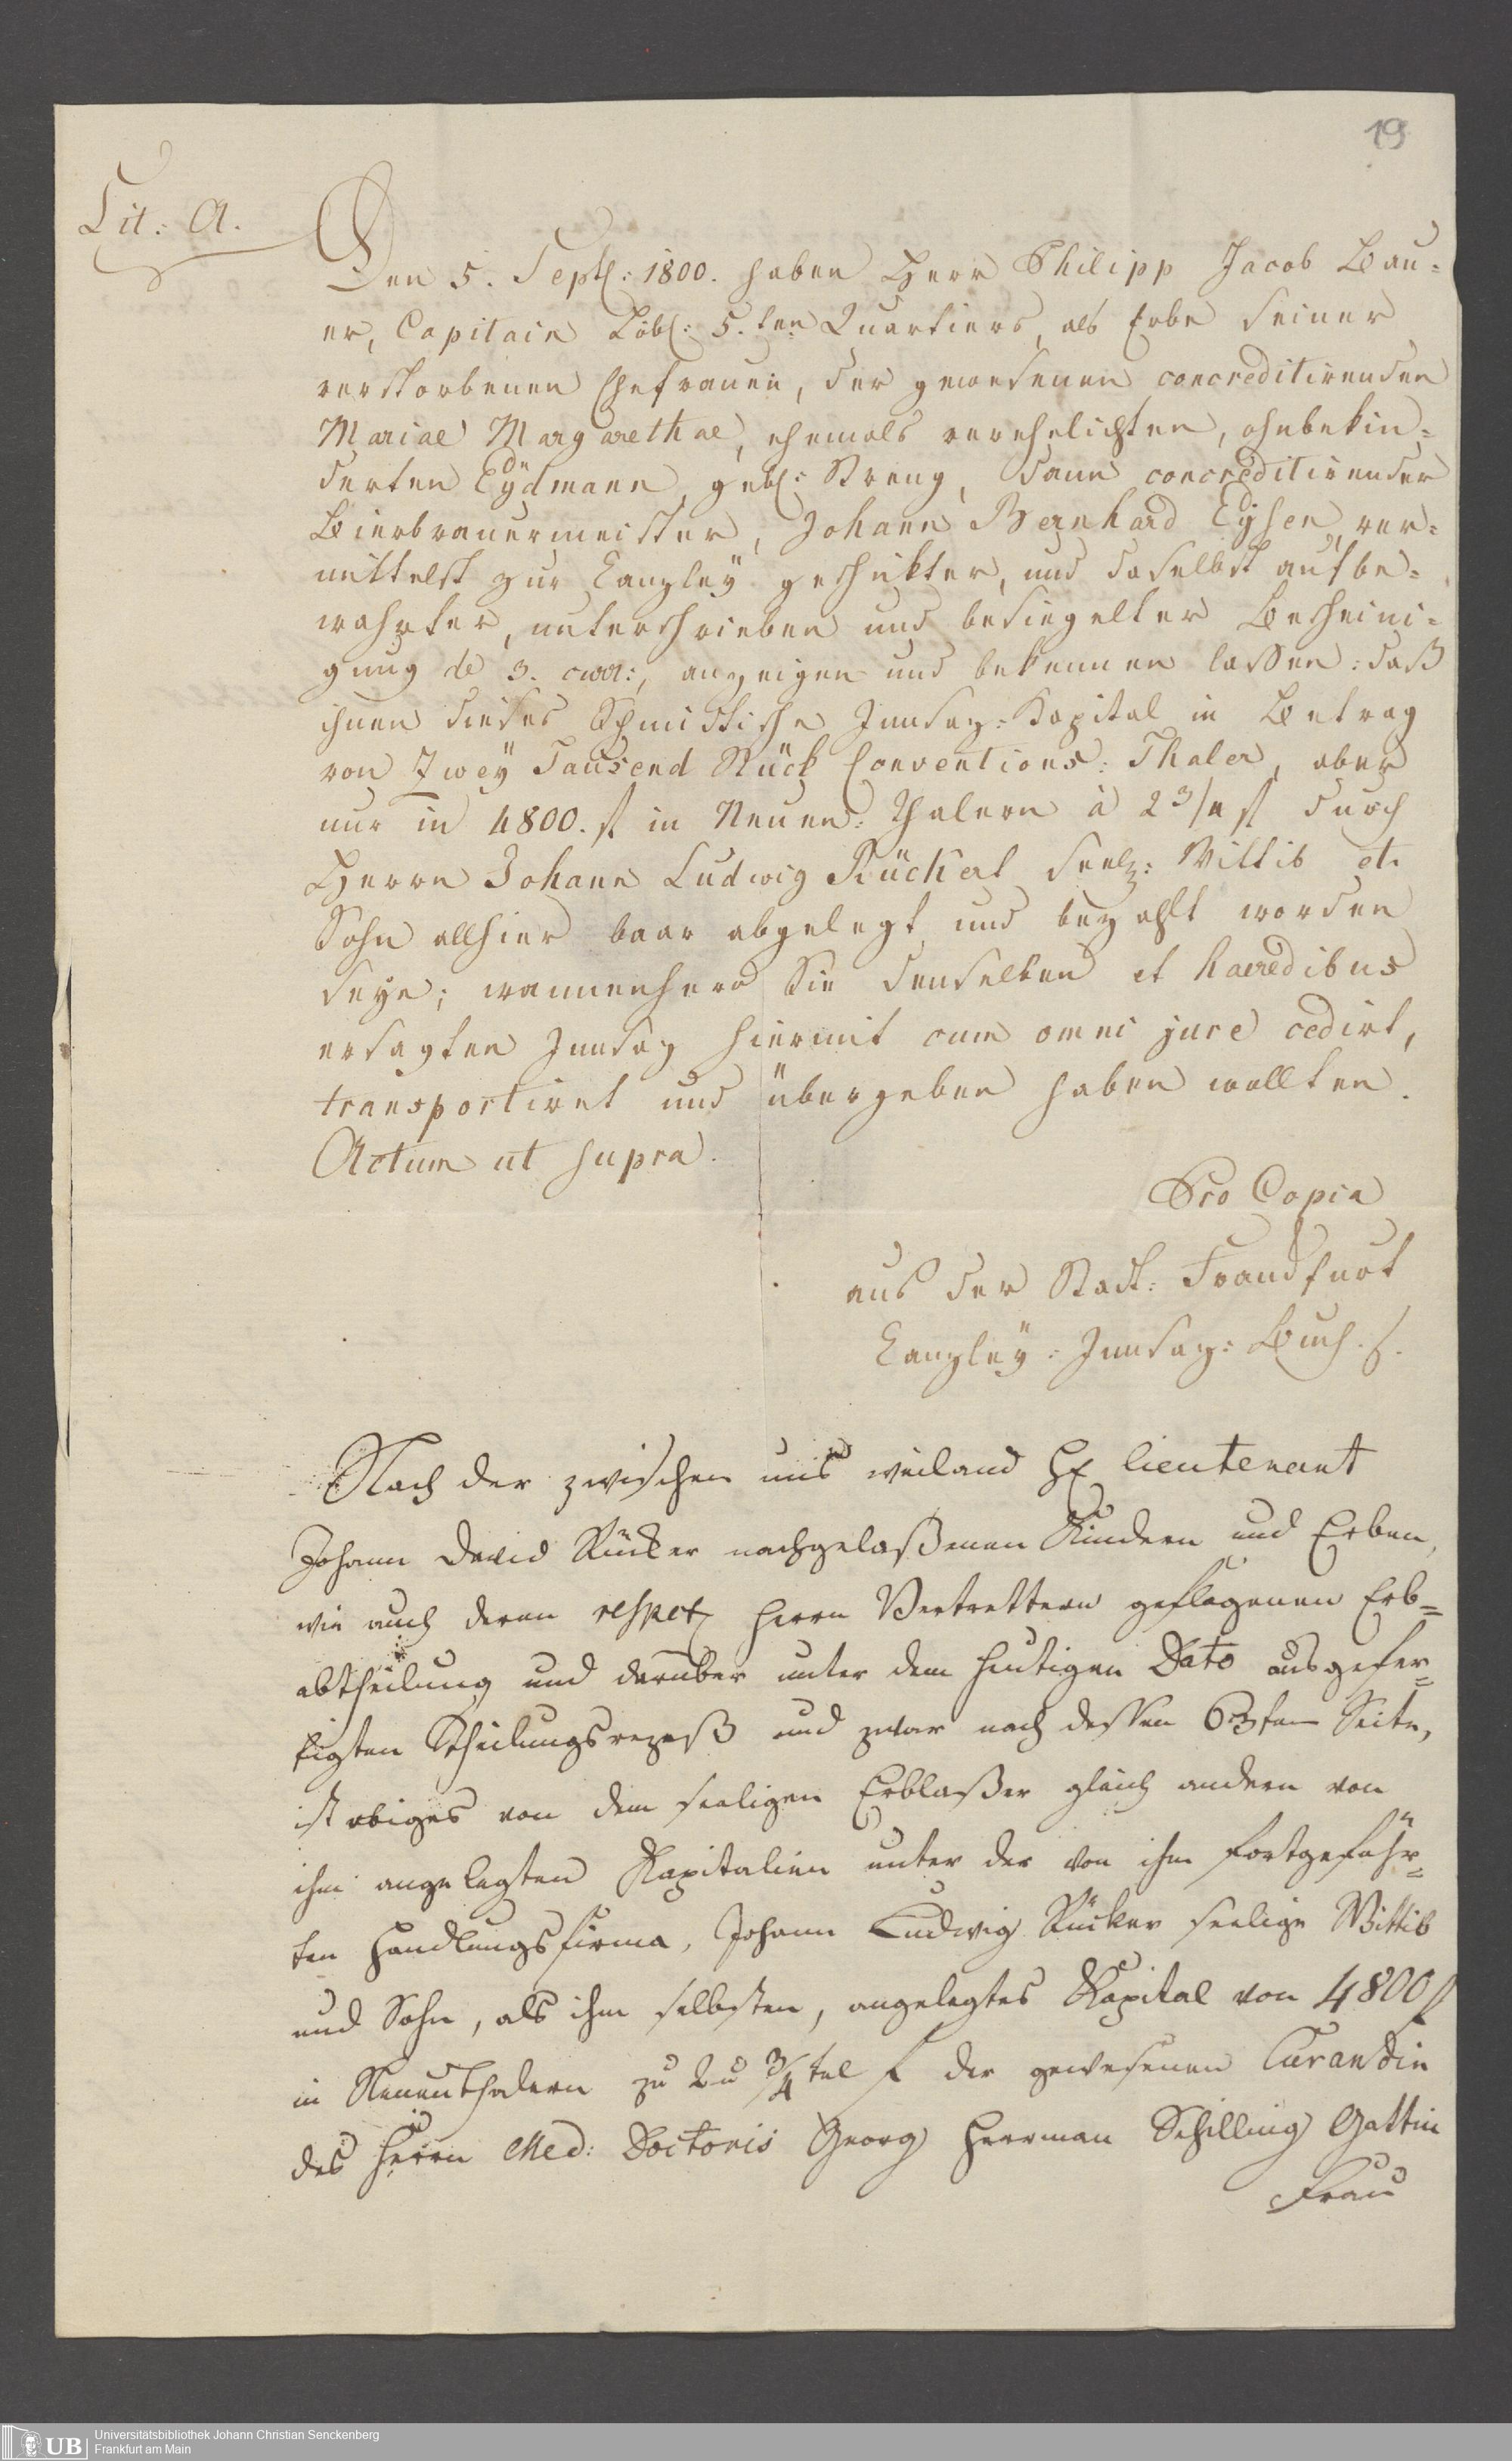 19
Lit: A.
Den 5. Sept: 1800. haben Herr Philipp Jacob Bau=
er, Capitain Löbl: 5.ten Quartiers, als Erbe seiner
verstorbenen Ehefrauen, der gewesenen concreditirenden
Mariae Margarethae, ehemals verehelichten, ohnbekin=
derten Eÿdmann, gebl: Streng, dann concreditirender
Bierbrauermeister, Johann Bernhard Eÿsen, ver=
mittelst zur Canzleÿ geschickter, und daselbst aufbe=
wahrter, unterschrieben und besiegelter Bescheini=
gung de 3. curr:, anzeigen und bekennen lassen: daß
ihnen dieses Insaz=Kapital in Betrag
von Zweÿ Tausend Stück Conventions=Thaler, aber
nur in 4800. fl in Neuen=Thalern à 2 3/4 fl durch
Herrn Johann Ludwig Rückert seelg: Wittib et
Sohn allhier baar abgelegt und bezahlt worden
seÿe; wannenhero Sie denselben et haeredibus
ersagten Innsaz hiermit cum omni jure cedirt,
transportiret und übergeben haben wollten.
Actum ut supra.
Pro Copia
aus der Stadt=Franckfurt
Canzleÿ=Innsaz=Buch.
Nach der zwischen uns weiland H. lieutenant
Johann David Rücker nachgelaßenen Kindern und Erben,
wie auch deren respet. Herrn Vertrettern gepflogenen Erb=
abtheilung und darüber unter dem heutigen Dato ausgefer=
tigten Theilungsrezeß und zwar nach dessen 63ten Seite,
ist obiges von dem seeligen Erblaßer gleich andern von
ihm angelegten Kapitalien unter der von ihm fortgeführ=
ten Handlungsfirma, Johann Ludwig Rücker seelige Wittib
und Sohn, als ihm selbsten, angelegtes Kapital von 4800 f
in Neuenthalern zu 2 u 3/4tel f der gewesenen Curandin
des Herrn Med: Doctoris Georg Herrman Schilling Gattin
Frau
Universitätsbibliothek Johann Christian Senckenberg
Frankfurt am Main
UB